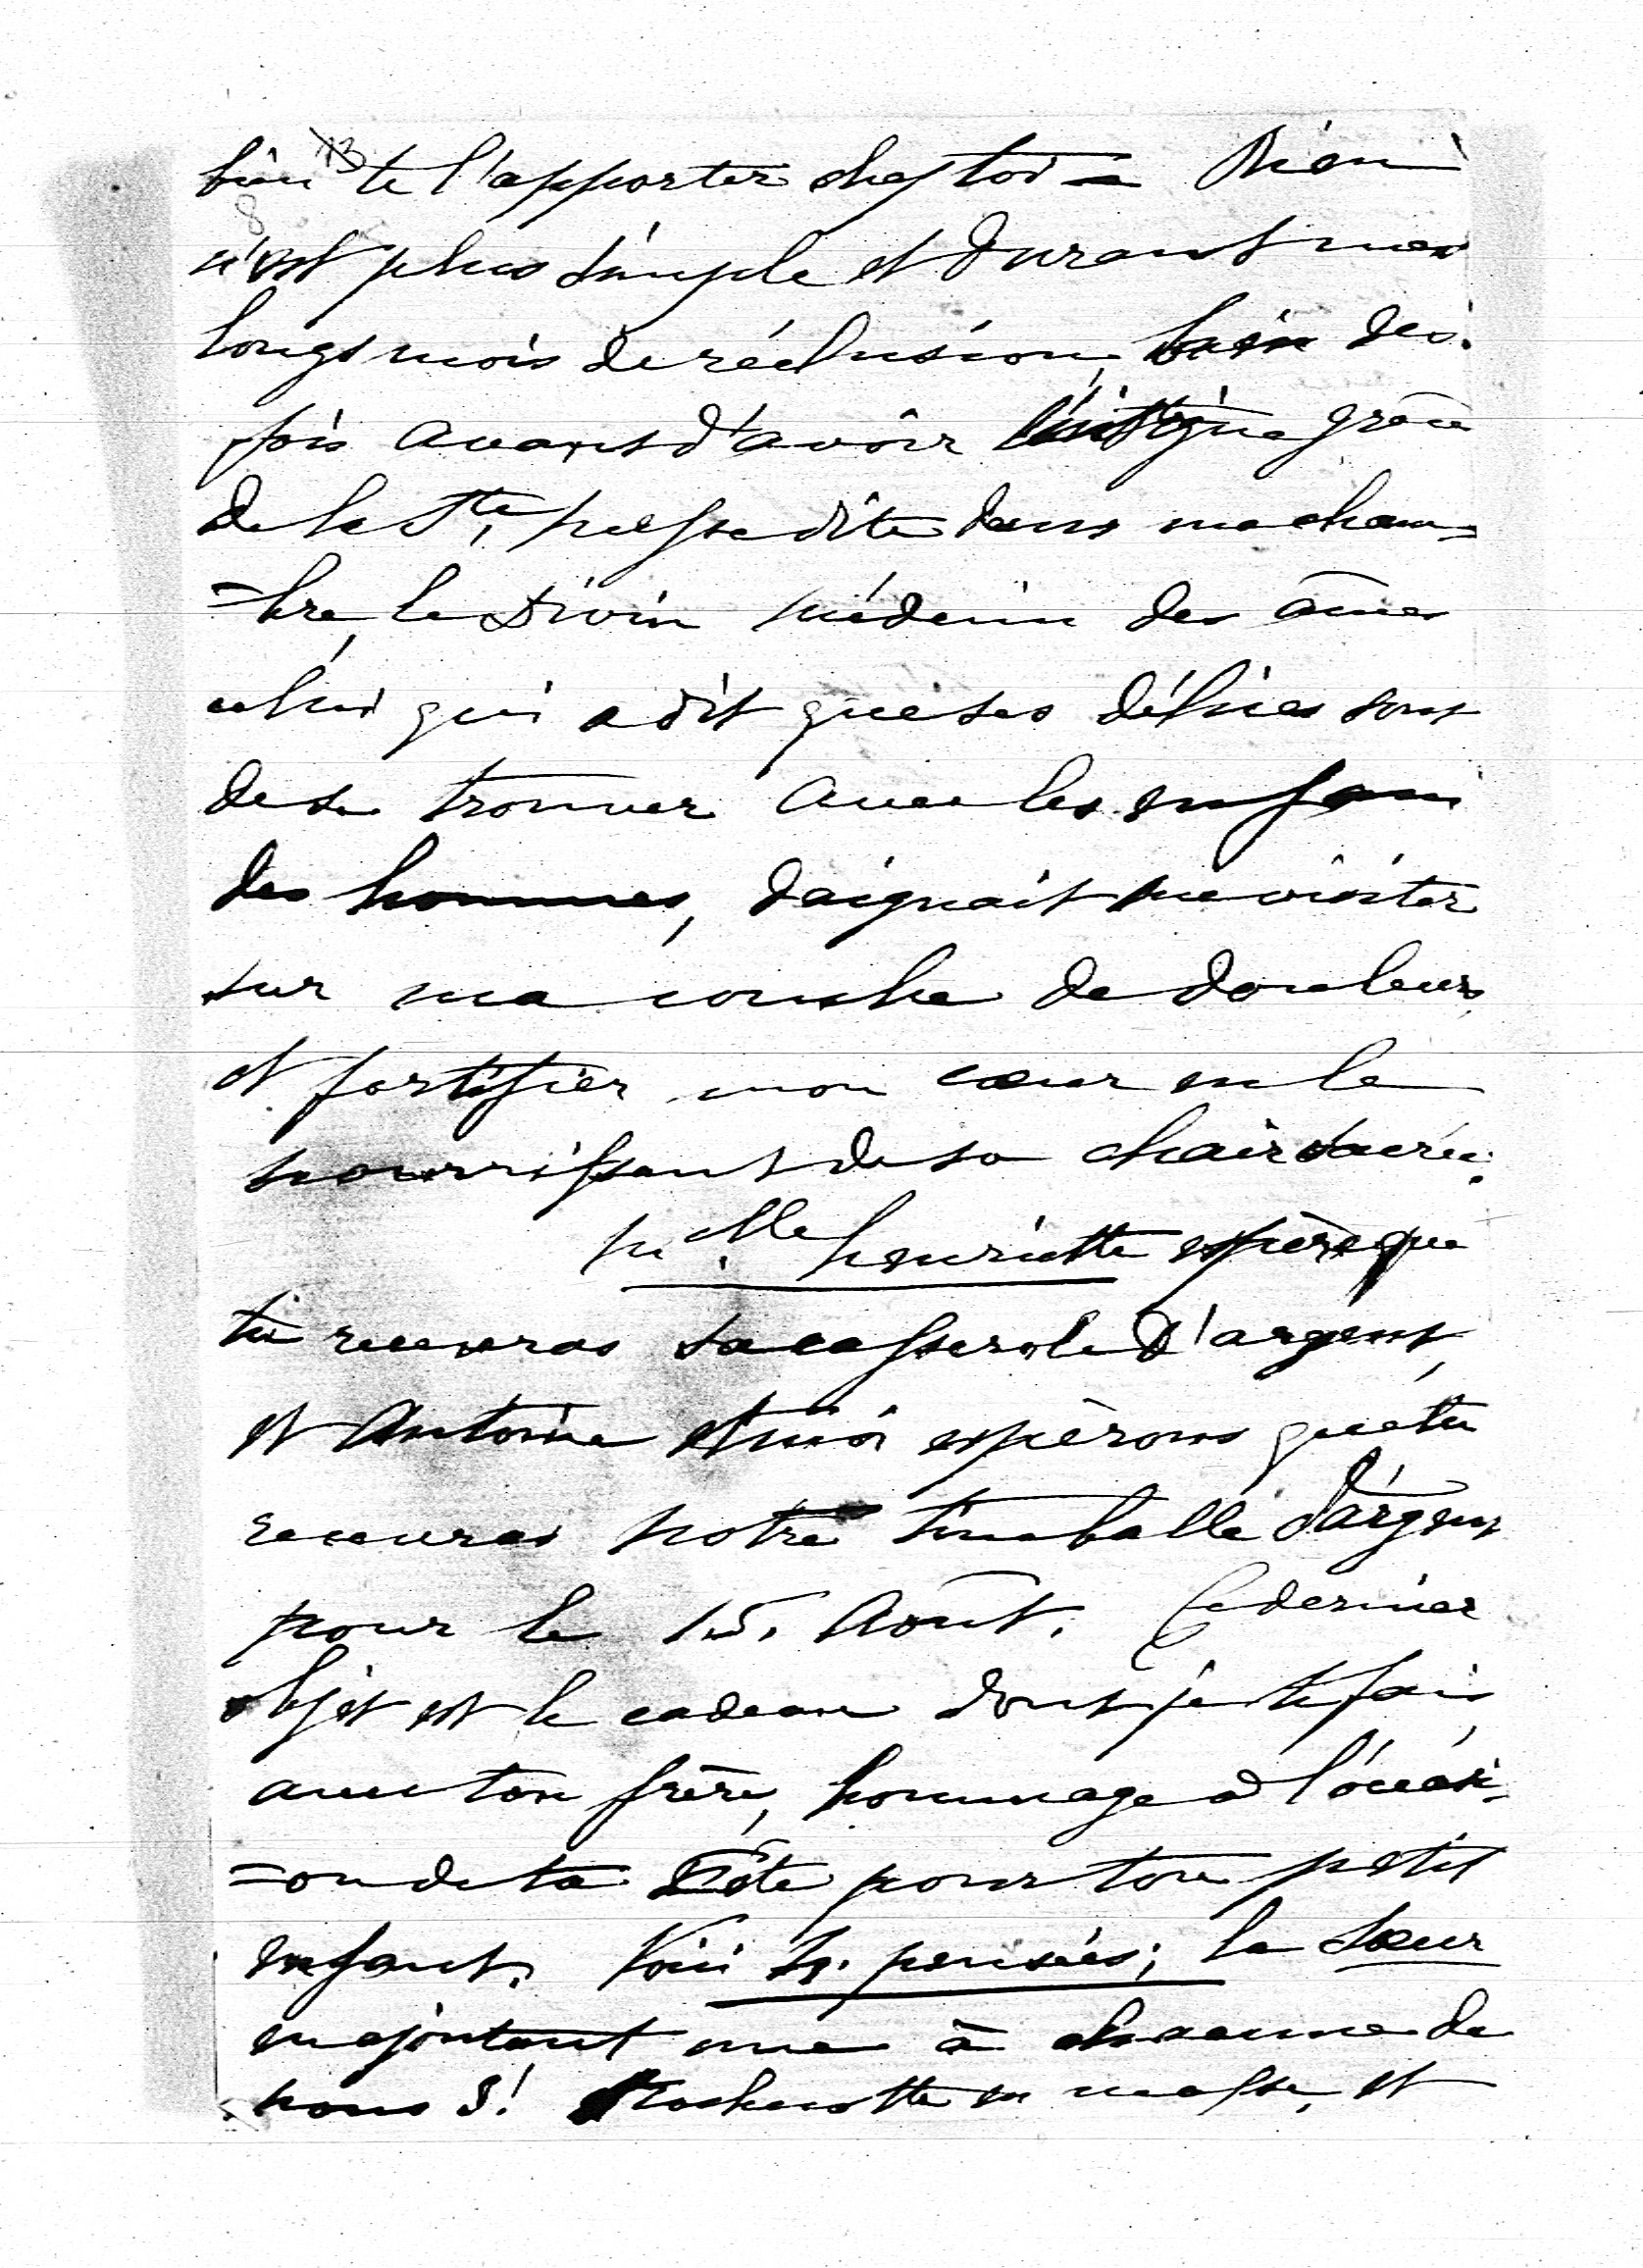 13
bien te l'apporter chez toi = Rien
8
n'est plus simple et durant mes
longs mois de réclusion, bien des
fois avant d'avoir l'insigne grâce
de la Ste. Messe dite dans ma cham=
=bre, le Divin Médecin des âmes
celui qui a dit que ses délices sont
de se trouver avec les enfans
des hommes, daignait me visiter
sur ma couche de douleurs
et fortifier mon cœur en le
nourrissant de sa chair sacrée.
Melle henriette espère que
tu recevras sa casserole d'argent,
et Antoine et moi espérons que tu
recevras notre timballe d'argent
pour le 15. Août. Ce dernier
objet est le cadeau dont je te fais,
avec ton frère, hommage à l'occasi=
=on de ta fête pour ton petit
enfant. Voici pensées; la sœur
en ajoutant une à chacune de
nous 3! en masse, et